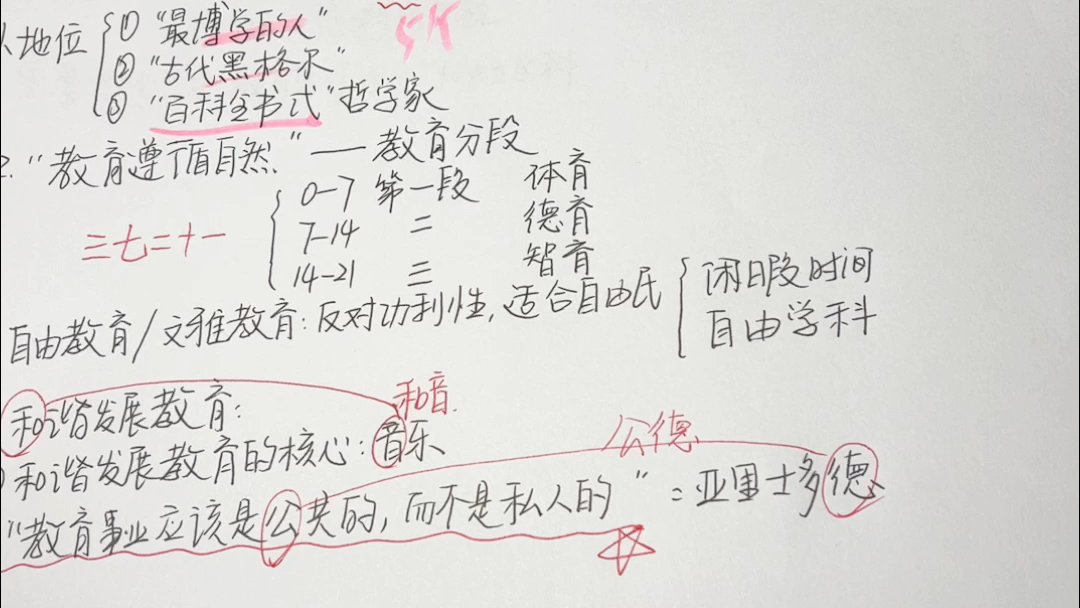 地位 ① "最博学的人"
5K
② "古代黑格尔"
③ "百科全书式"哲学家
2. "教育遵循自然" — 教育分段
0-7 第一段 体育
三七二十一
7-14 二 德育
14-21 三 智育
自由教育/文雅教育: 反对功利性, 适合自由民
闲暇时间
自由学科
和谐发展教育:
和音.
和谐发展教育的核心: 音乐
公德
"教育事业应该是公共的, 而不是私人的" = 亚里士多德